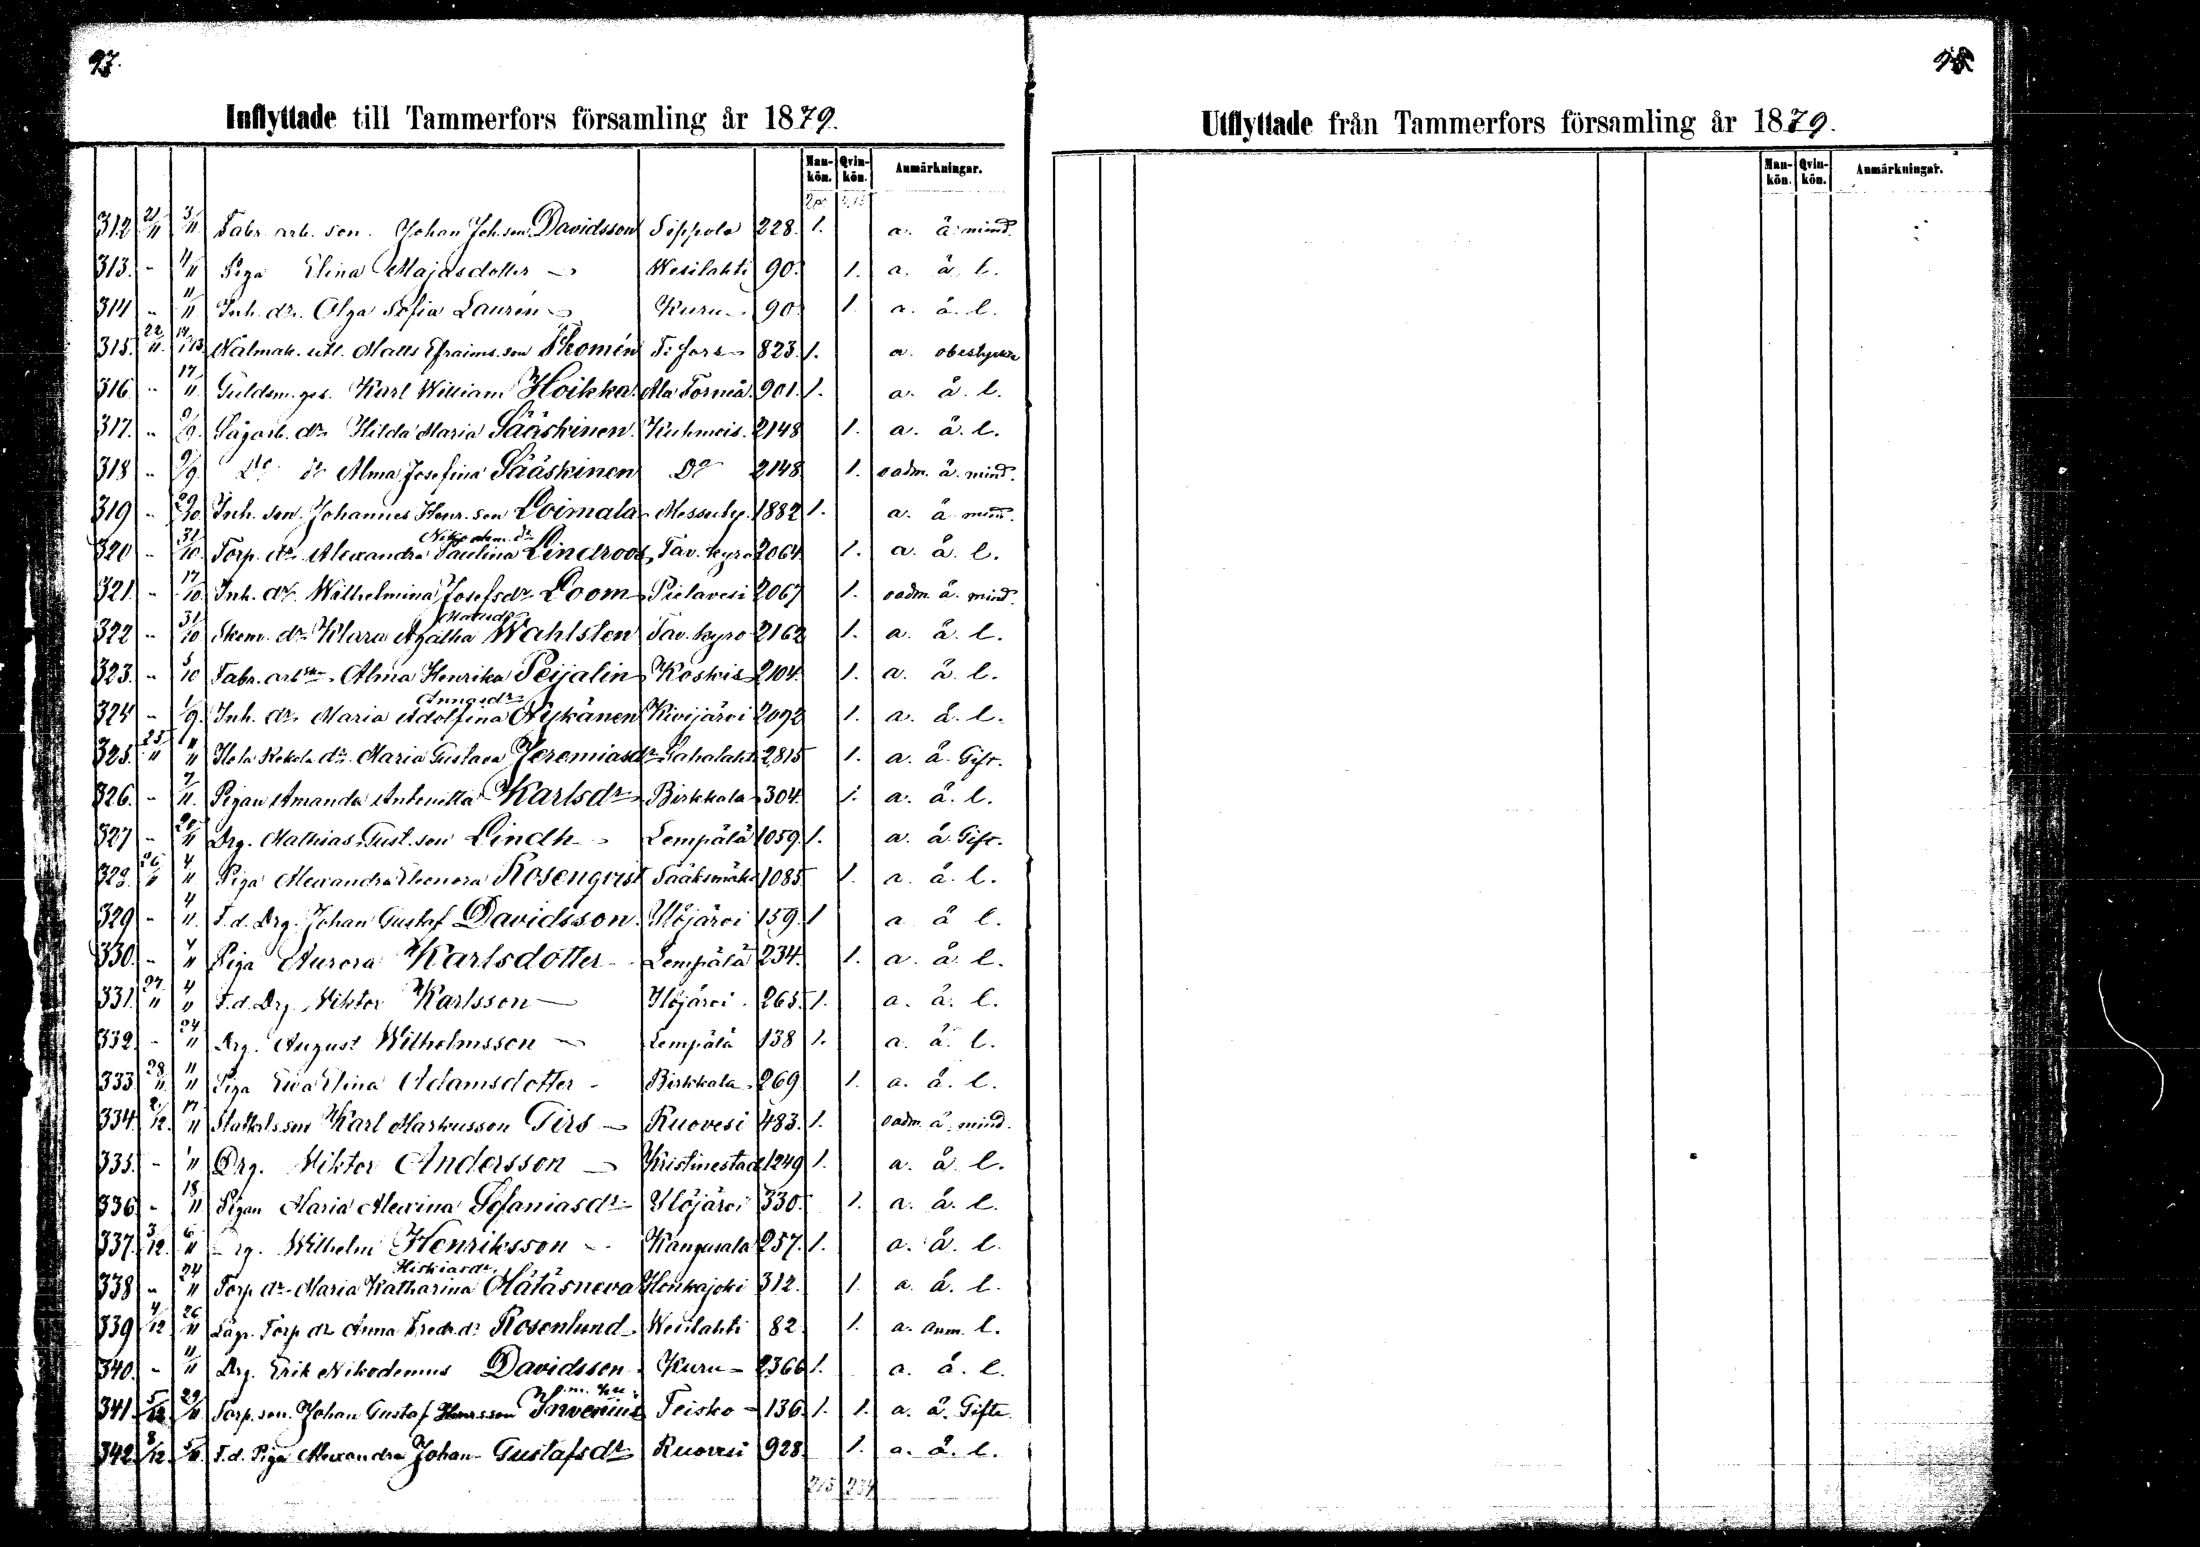 97.
Inflyttade till Tammerfors församling år 1879.
Man-kön. Qvin-kön. Anmärkningar.
312 21/11 3/11 Fabr. arb. son. Johan Joh.son Davidsson Sippola 228. 1. a. ä. mind.
313. - 4/11 Piga Elina Majasdotter Wesilahti 90. 1. a. ä. l.
314 - 11/11 Inh. dr. Olga Sofia Laurén Kuru 90 1. a. ä. l.
315. 22/11. Matts Efraims.son Thomén T:fors 823. 1. a. obestyrkt
316. - 17/11. Guldsm. ges. Karl William Hoikka Ala Torneå. 901. 1. a. ä. l.
317. - 9/9. Sågarb. dr Hilda Maria Sääskinen. Kuhmois. 2148 1. a. ä. l.
318 - 9/9. Do dr Alma Josefina Sääskinen Do 2148 1. oadm. ä. mind.
319 - 29/10 Inh. son. Johannes Henr. son Loimala Messuby. 1882 1. a. ä mind.
320 - 31/10. Torp. dr. Alexandra Paulina Nikodem. dr Lindroos Tav. kyro 2064 1. a. ä. l.
321. - 17/10. Inh. dr. Wilhelmina Josefsdr Loom Pielavesi 2067 1. oadm. ä. mind.
322 - 31/10 Skom. dr Klara Agatha Wahlsten Tav. kyro 2162 1. a. ä. l.
323. - 1/10 Fabr. arb. Alma Henrika Peijalin Koskis 2104. 1. a. ä. l.
324 - 1/9. Inh. dr. Maria Adolfina Annasdr Nykänen Kivijärvi 2092 1. a. ä. l.
325. 25/11 11/11 dr. Maria Gustava Jeremiasdr Sahalahti 2815 1. a. ä. Gift.
326. - 7/11. Pigan Amanda Antonetta Karlsdr Birkkala 304. 1. a. ä. l.
327 - 20/11 Drg. Mathias Gust. son Lindh Lempälä 1059. 1. a. ä. Gift.
328. 26/11 4/11 Piga Alexandra Eleonora Rosenqvist Sääksmäki 1085 1. a. ä. l.
329 - 4/11. F. d. Drg. Johan Gustaf Davidsson. Ylöjärvi 159. 1 a ä l.
330. - 4/11 Piga Aurora Karlsdotter Lempälä 234. 1. a. ä. l.
331. 27/11 4/11 F. d. Drg. Viktor Karlsson Ylöjärvi. 265. 1. a. ä. l.
332. - 24/11 Drg. August Wilhelmsson Lempälä 138 1. a. ä. l.
333. 28/11. 11/11 Piga Eva Elina Adamsdotter Birkkala. 269 1. a. ä. l.
334. 2/12. 17/11 Karl Markusson Girs Ruovesi 483. 1. oadm. ä. mind.
335. - 1/11 Drg. Viktor Andersson Kristinestad 1249 1. a. ä. l.
336. - 18/11 Pigan Maria Alexina Sefaniasdr Ylöjärvi 330. 1. a. ä. l.
337. 3/12. 6/11 Drg. Wilhelm Henriksson Kangasala 257. 1. a. ä. l.
338 - 24/11 Torp. dr. Maria Katharina Hiskiasdr. Mätäsneva Honkajoki 312. 1. a. ä. l.
339 4/12 26/11 Torp dr. Anna Fredr. dr Rosenlund Wesilahti 82 1. a. anm. l.
340. - 11/11 Drg. Erik Nikodemus Davidsson Kuru 2366 1. a. ä. l.
341. 5/12 29/11 Torp. son. Johan Gustaf Henrsson Invenius m. hu. Teisko 136. 1. 1. a. ä. Gifta
342. 8/12. 5/11. F. d. Piga Alexandra Johan-Gustafsdr Ruovesi 928. 1. a. ä. l.
215 234
98
Utflyttade från Tammerfors församling år 1879.
Man-kön. Qvin-kön. Anmärkningar.